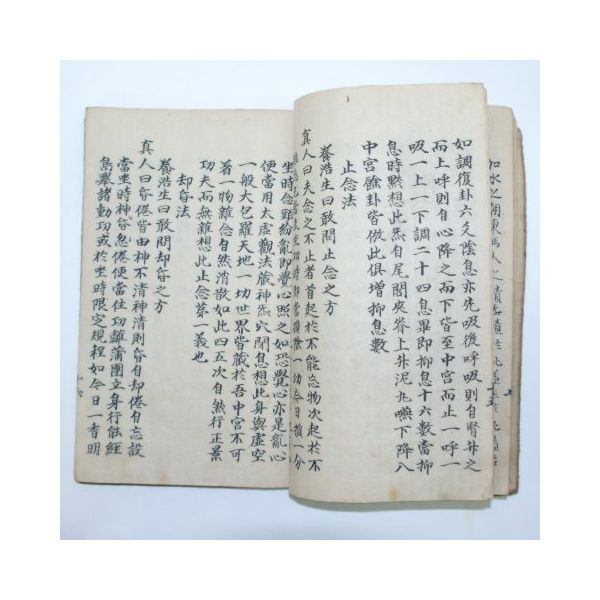 如調復卦六爻陰息亦先吸後呼吸則自腎升之
而上呼則自心降之而下皆至中宮而止一呼一
吸一上一下調二十四息畢即抑息十六數當抑
息時黙想此炁自尾閭夾脊上升泥丸嚥下降入
中宮餘卦皆倣此俱增抑息數
止念法
養浩生曰敢問止念之方
真人曰夫念之不止者首起於不能忘物次起於不
坐時念頭紛亂即覺心照之如恐覺心亦是亂心
便當用太虛觀法藏神炁穴閉息想此身與虛空
一般大包羅天地一切世界皆藏於吾中宮不可
着一物雜念自然消散如此四五次自然行正景
功夫而無雜想此止念第一義也
却昏法
養浩生曰敢問却昏之方
真人曰昏倦皆由神不清神清則昏自却倦自忘設
當坐時神昏忽倦便當住功離蒲團立身行熊經
鳥舉諸動功或於坐時限定規程如今日一香明
十六